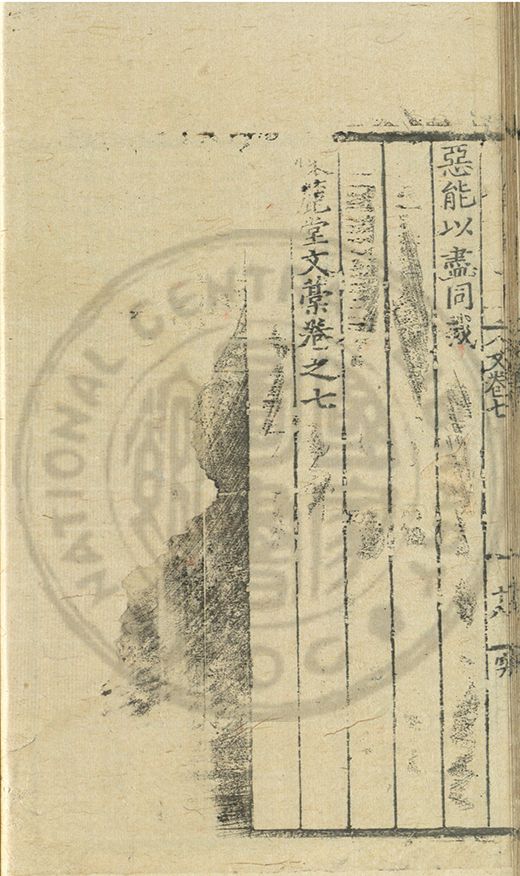 惡能以盡同哉
範堂文藁卷之七
文卷七
十八
NATIONAL CENTRAL